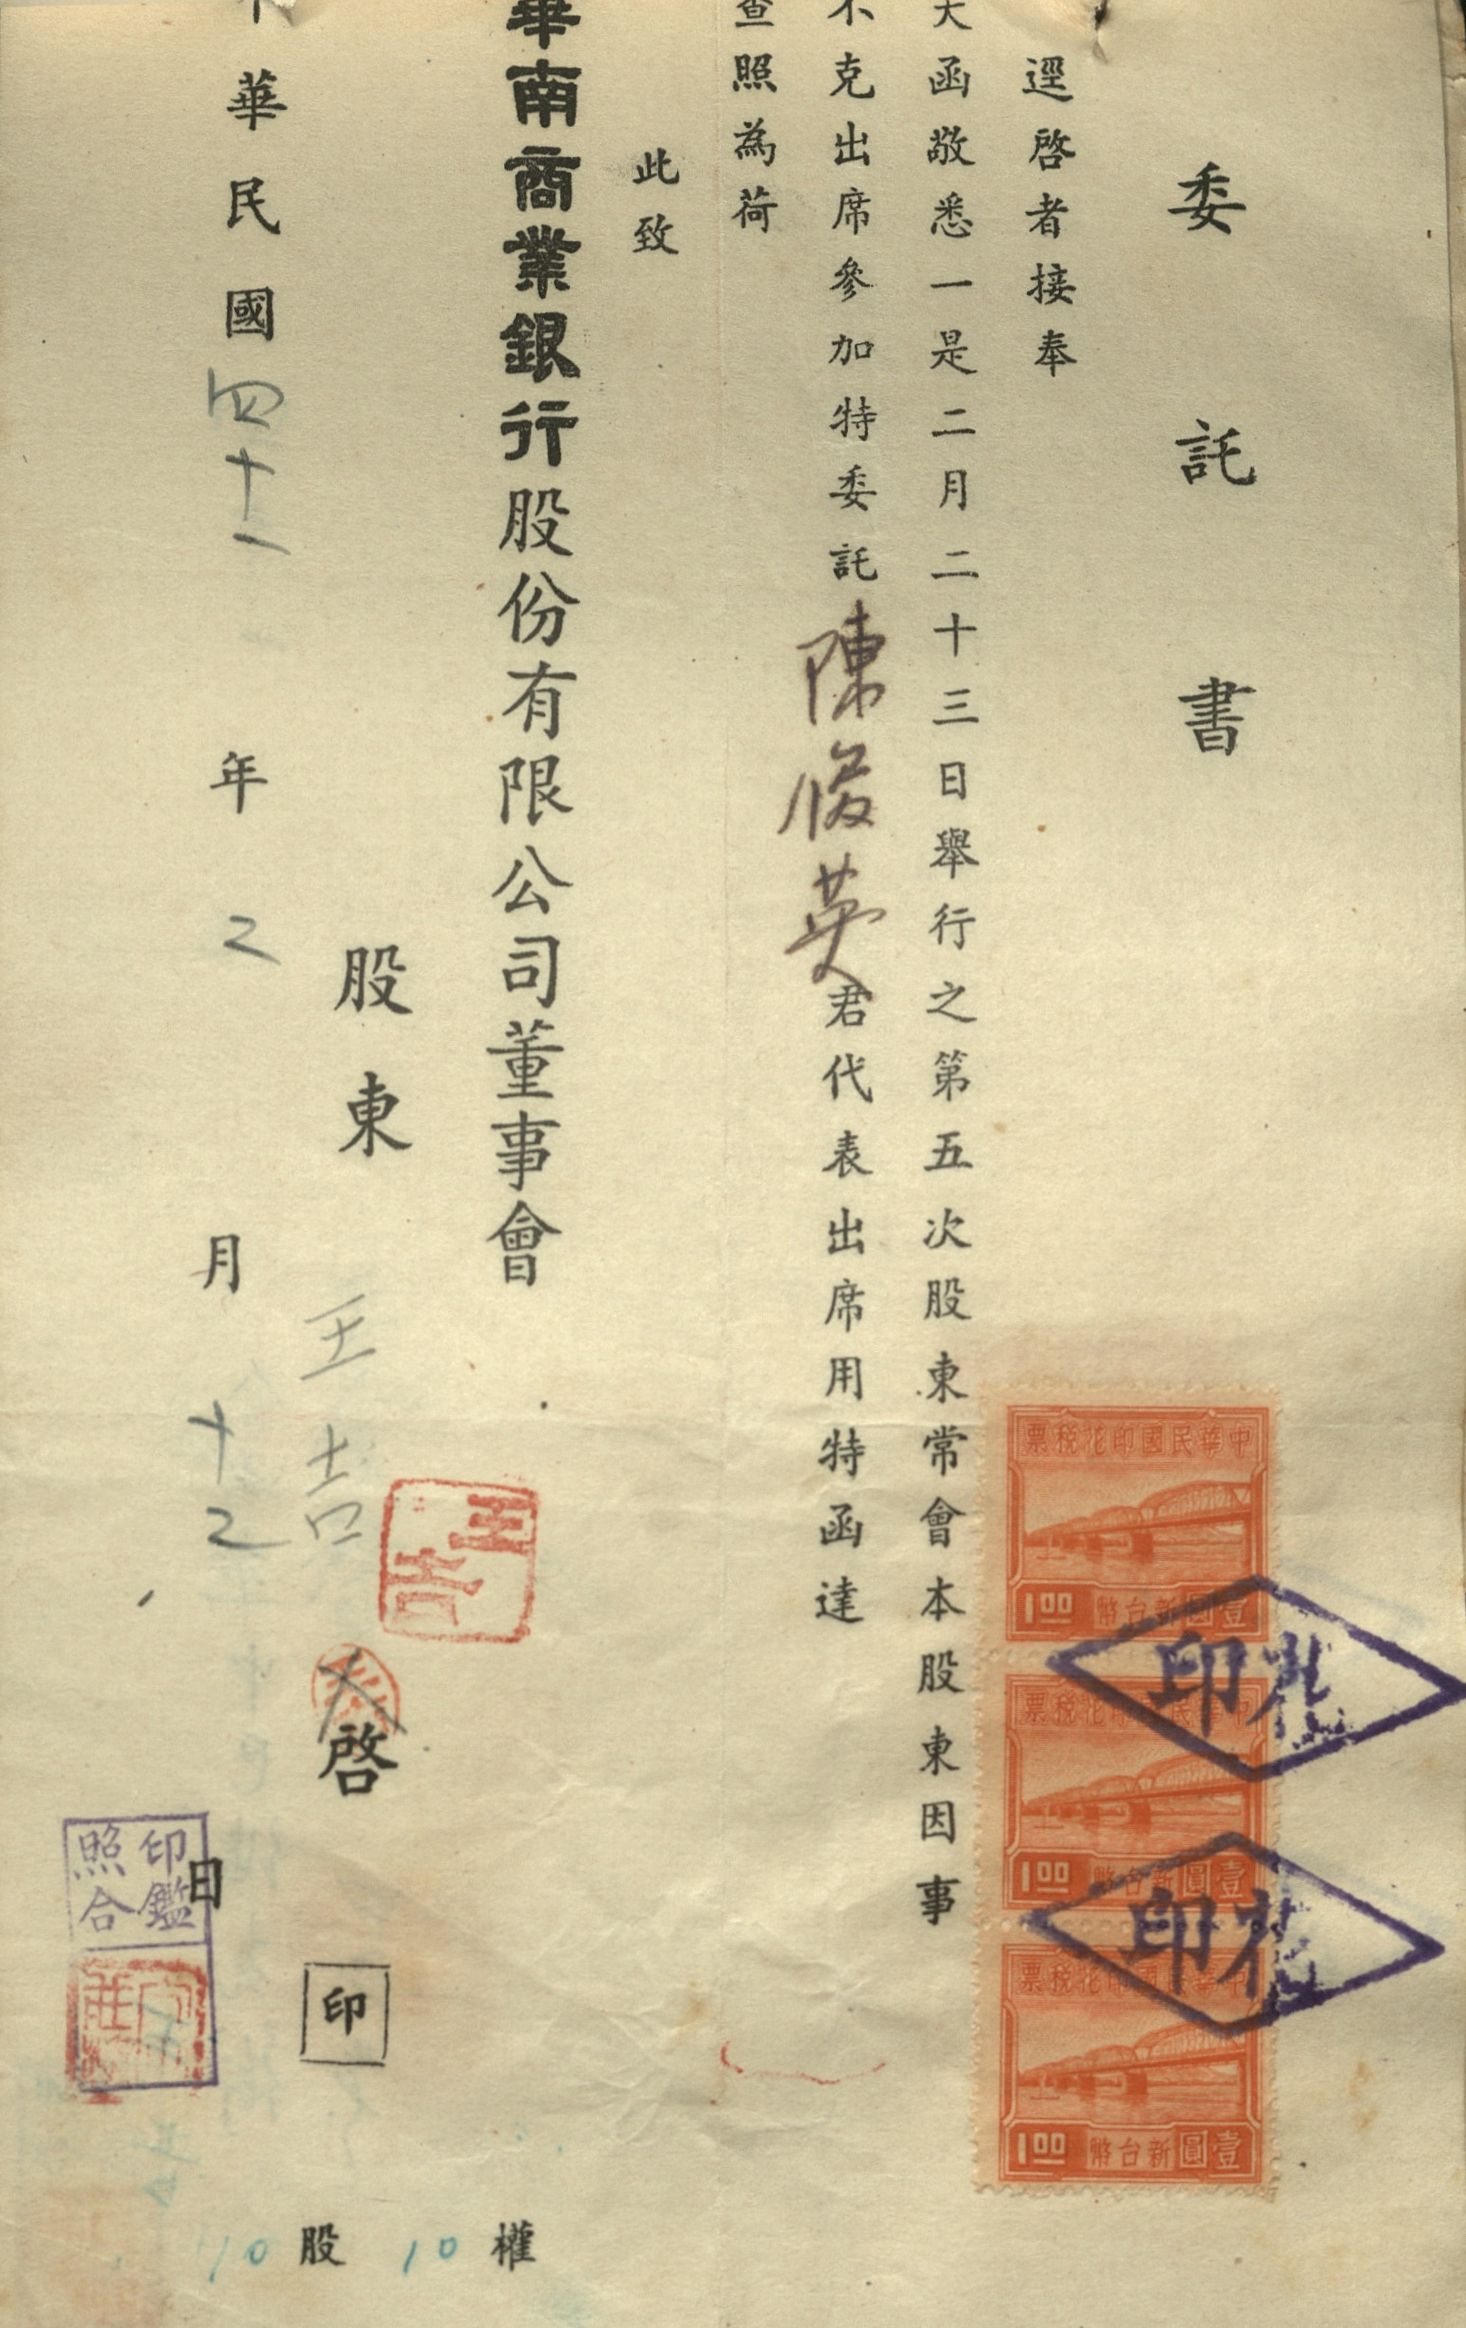 委託書
逕啓者接奉
大函敬悉一是二月二十三日舉行之第五次股東常會本股東因事
不克出席參加特委託陳俊英君代表出席用特函達
查照為荷
此致
華南商業銀行股份有限公司董事會
股東 王吉 啓 印
王吉
中華民國四十一年2月十2日
印鑑
照合
10股 10權
中華民國印花稅票
1.00 新台幣壹圓
中華民國印花稅票
1.00 新台幣壹圓
中華民國印花稅票
1.00 新台幣壹圓
印花
印花